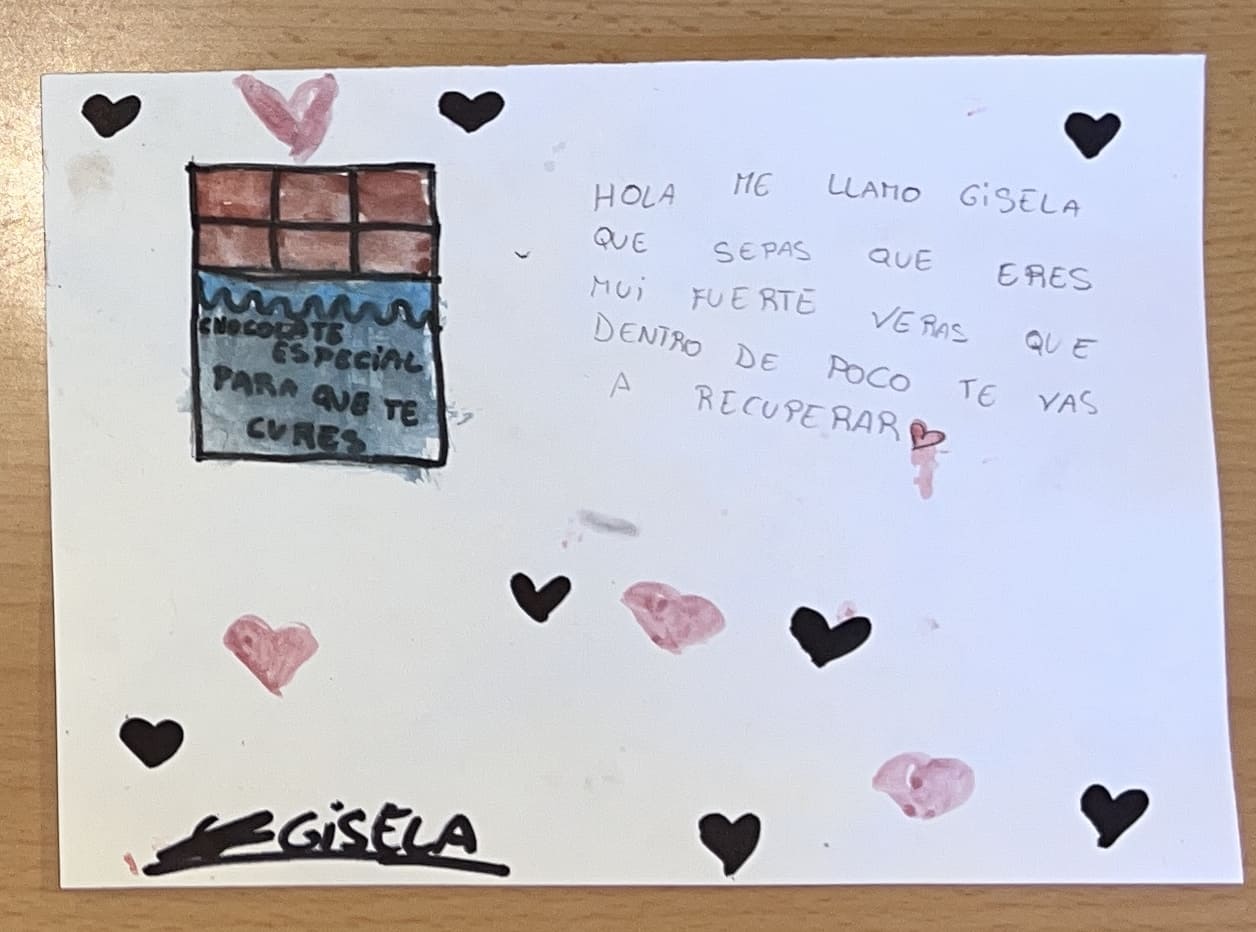 CHOCOLATE
ESPECIAL
PARA QUE TE
CURES
HOLA ME LLAMO GiSELA
QUE SEPAS QUE ERES
MUi FUERTE VERAS QUE
DENTRO DE POCO TE VAS
A RECUPERAR
GiSELA